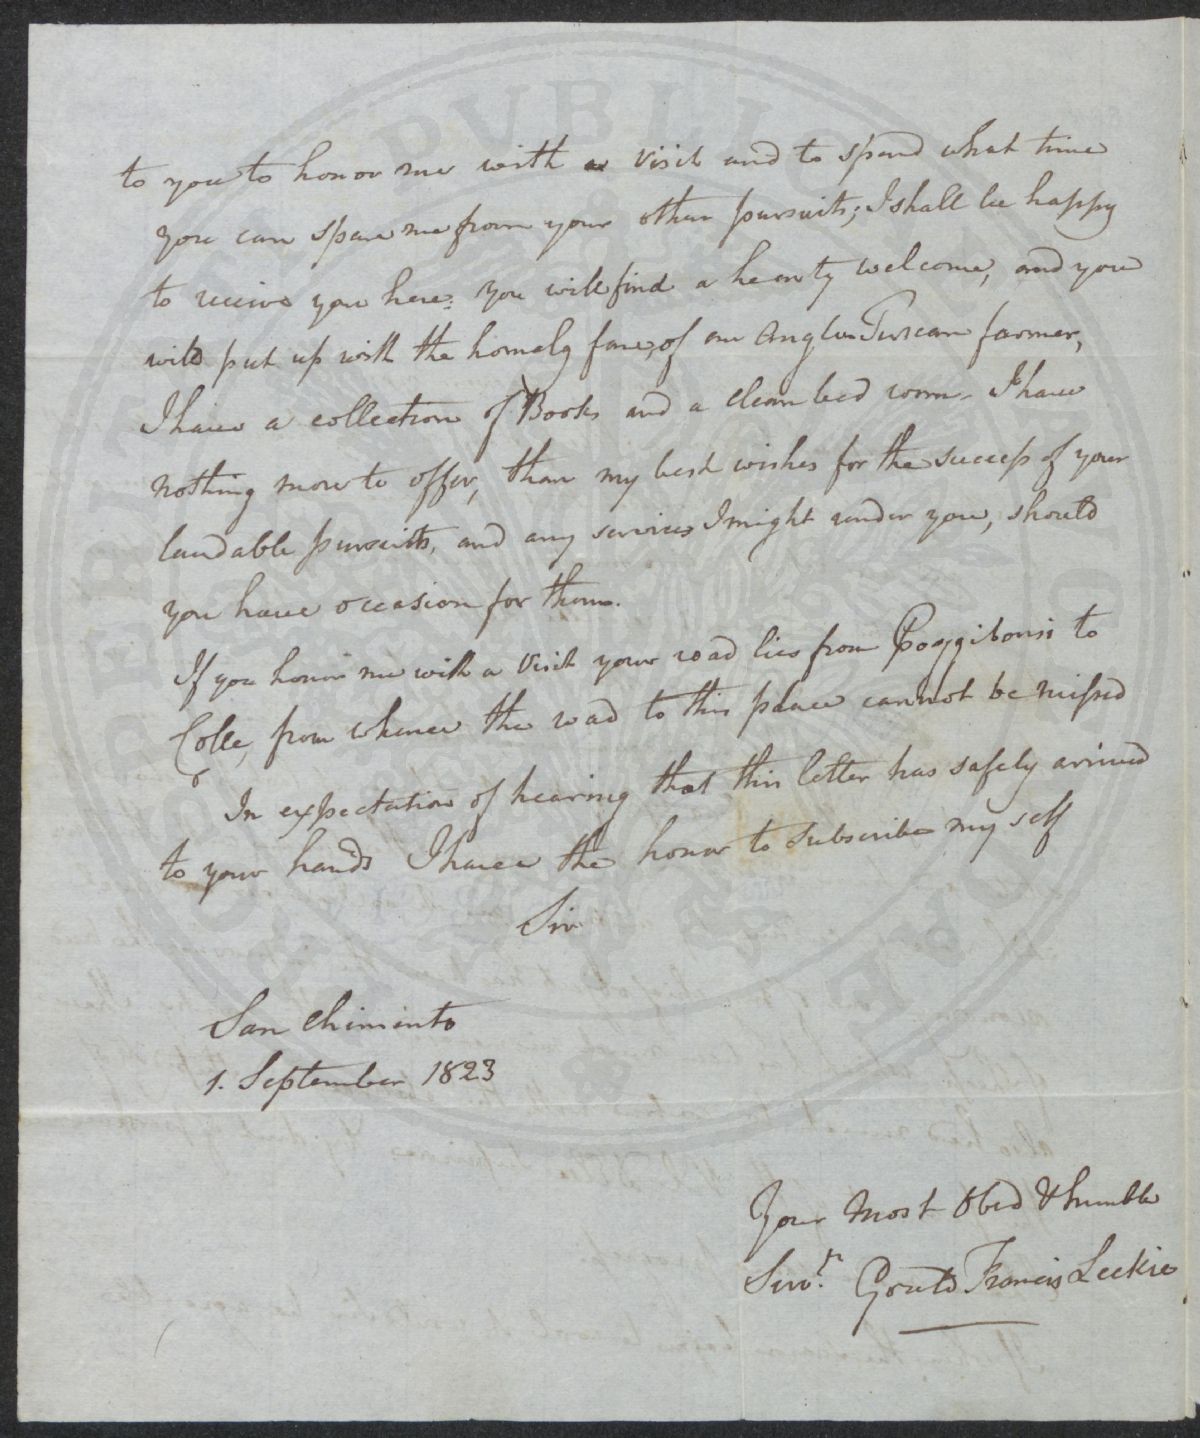 to you to honor me with a visit and to spend what time
you can spare me from your other pursuits; I shall be happy
to receive you here; you will find a hearty welcome, and you
will put up with the homely fare, of an Anglo Tuscan farmer,
I have a collection of Books and a clean bed room. I have
nothing more to offer, than my best wishes for the success of your
laudable pursuits, and any services I might render you, should
you have occasion for them.
If you honor me with a visit your road lies from Poggibonsi to
Colle, from whence the road to this place cannot be missed
In expectation of hearing that this letter has safely arrived
to your hands I have the honor to subscribe my self
Sir
San Chimento
1. September 1823
Your most Obed & humble
Servt. Gould Francis Leckie